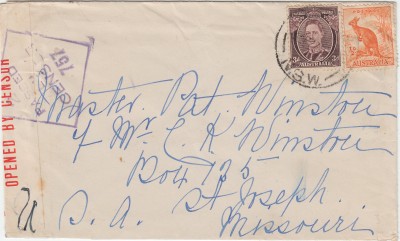 OPENED BY CENSOR
757
AUSTRALIA
AUSTRALIA
N.S.W.
Master Pat Winston
% Mr C. K Winston
Box 735
St Joseph
Missouri
U. S. A.